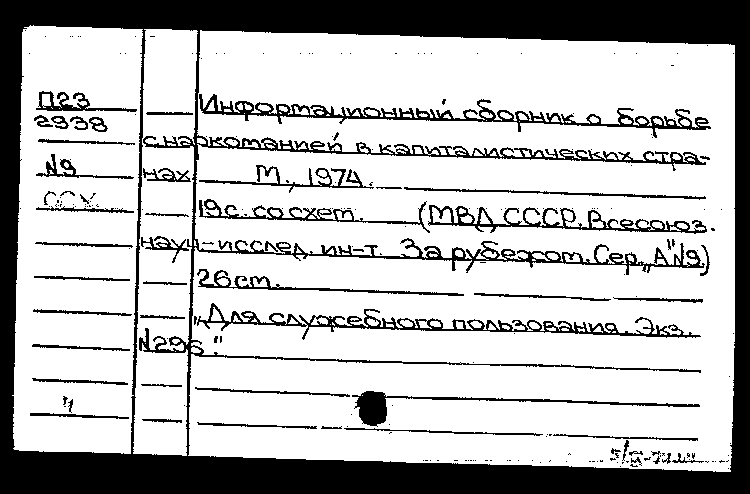 П23
2938
№9
Информационный сборник о борьбе
с наркоманией в капиталистических стра-
нах. М., 1974.
19с. со схем. (МВД СССР. Всесоюз.
науч-исслед. ин-т. За рубежом. Сер. „А" №9)
26см.
„Для служебного пользования. Экз.
№296."